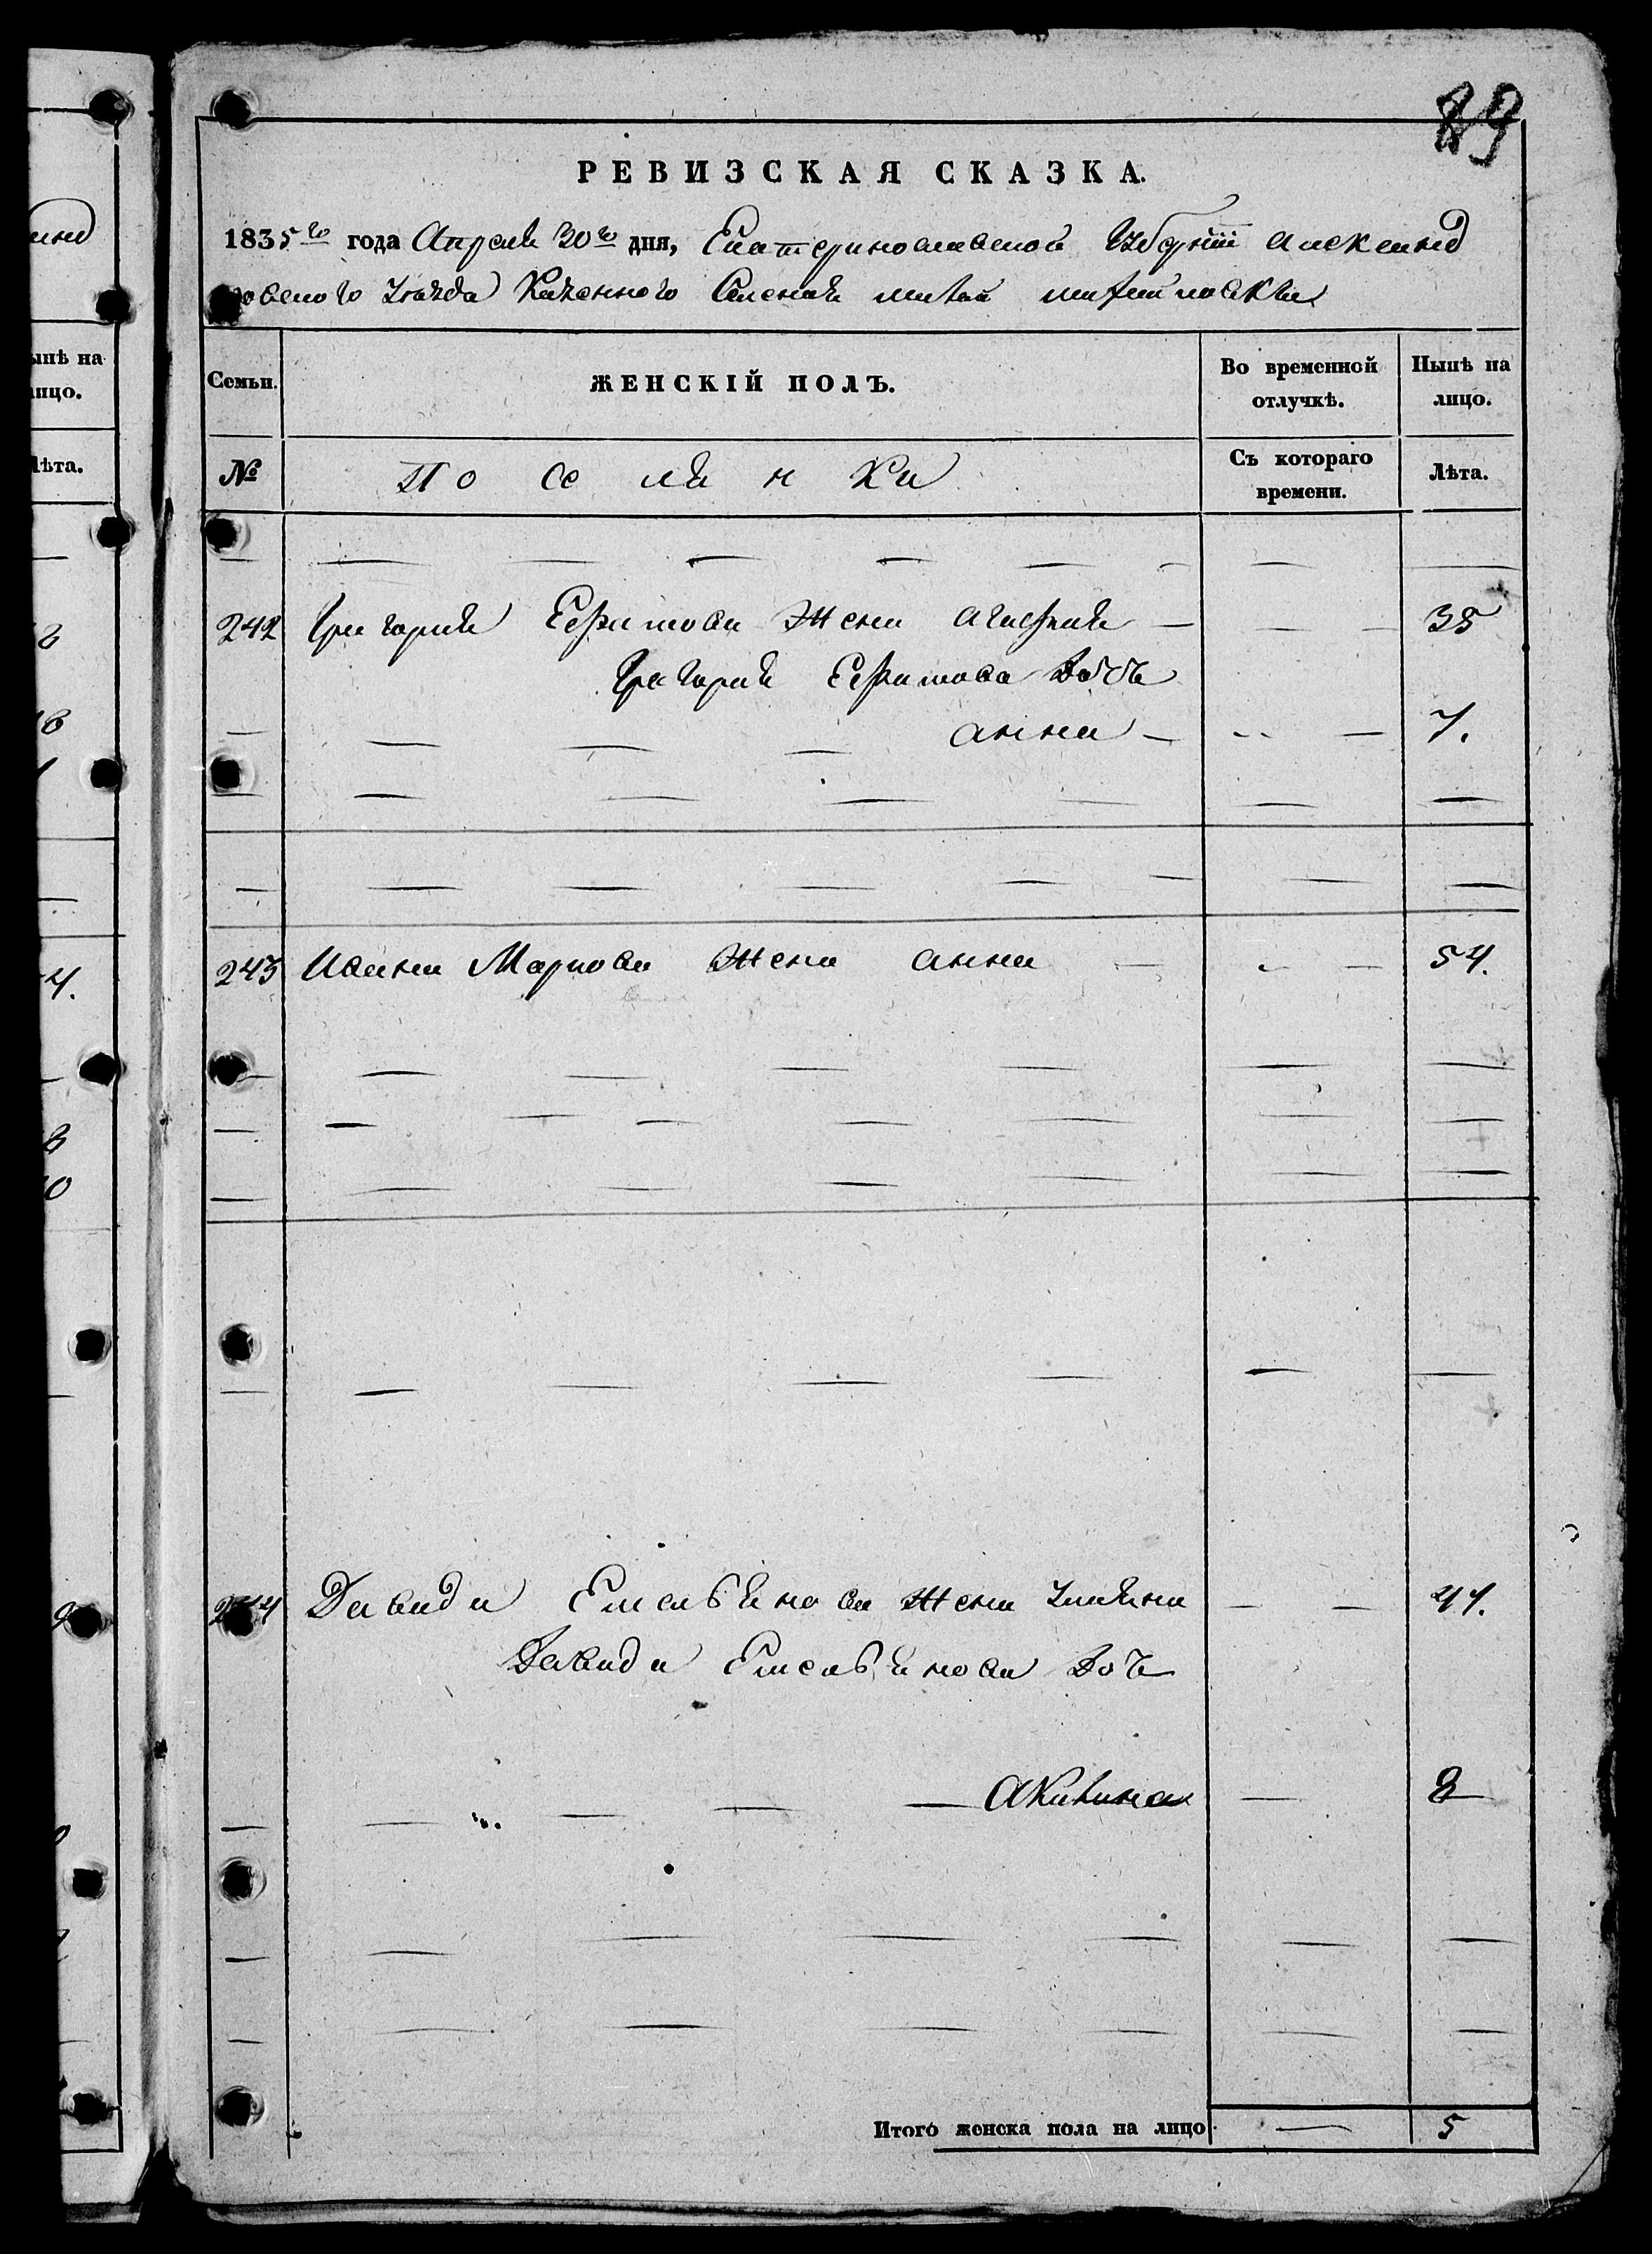 89
РЕВИЗСКАЯ СКАЗКА.
1835го года Апреля 30го дня, Екатеринославской Губернiи Александ
ровского уезда Казенного Селения
Семьи. ЖЕНСКIЙ ПОЛЪ. Во временной отлучкѣ. Нынѣ на лицо.
№ Поселянки Съ котораго времени. Лѣта.
242 Григория Ефимова жена Агафия — — — 35
Григория Ефимова дочь
— — — — анна — — — 7.
243 Ивана Маркова жена анна — — — 54.
244 Давида Емельянова жена — — 41.
Давида Емельянова доч
— — — — — Акилина — 8
Итого женска пола на лицо. — 5
ынѣ на
лицо.
Лѣта.